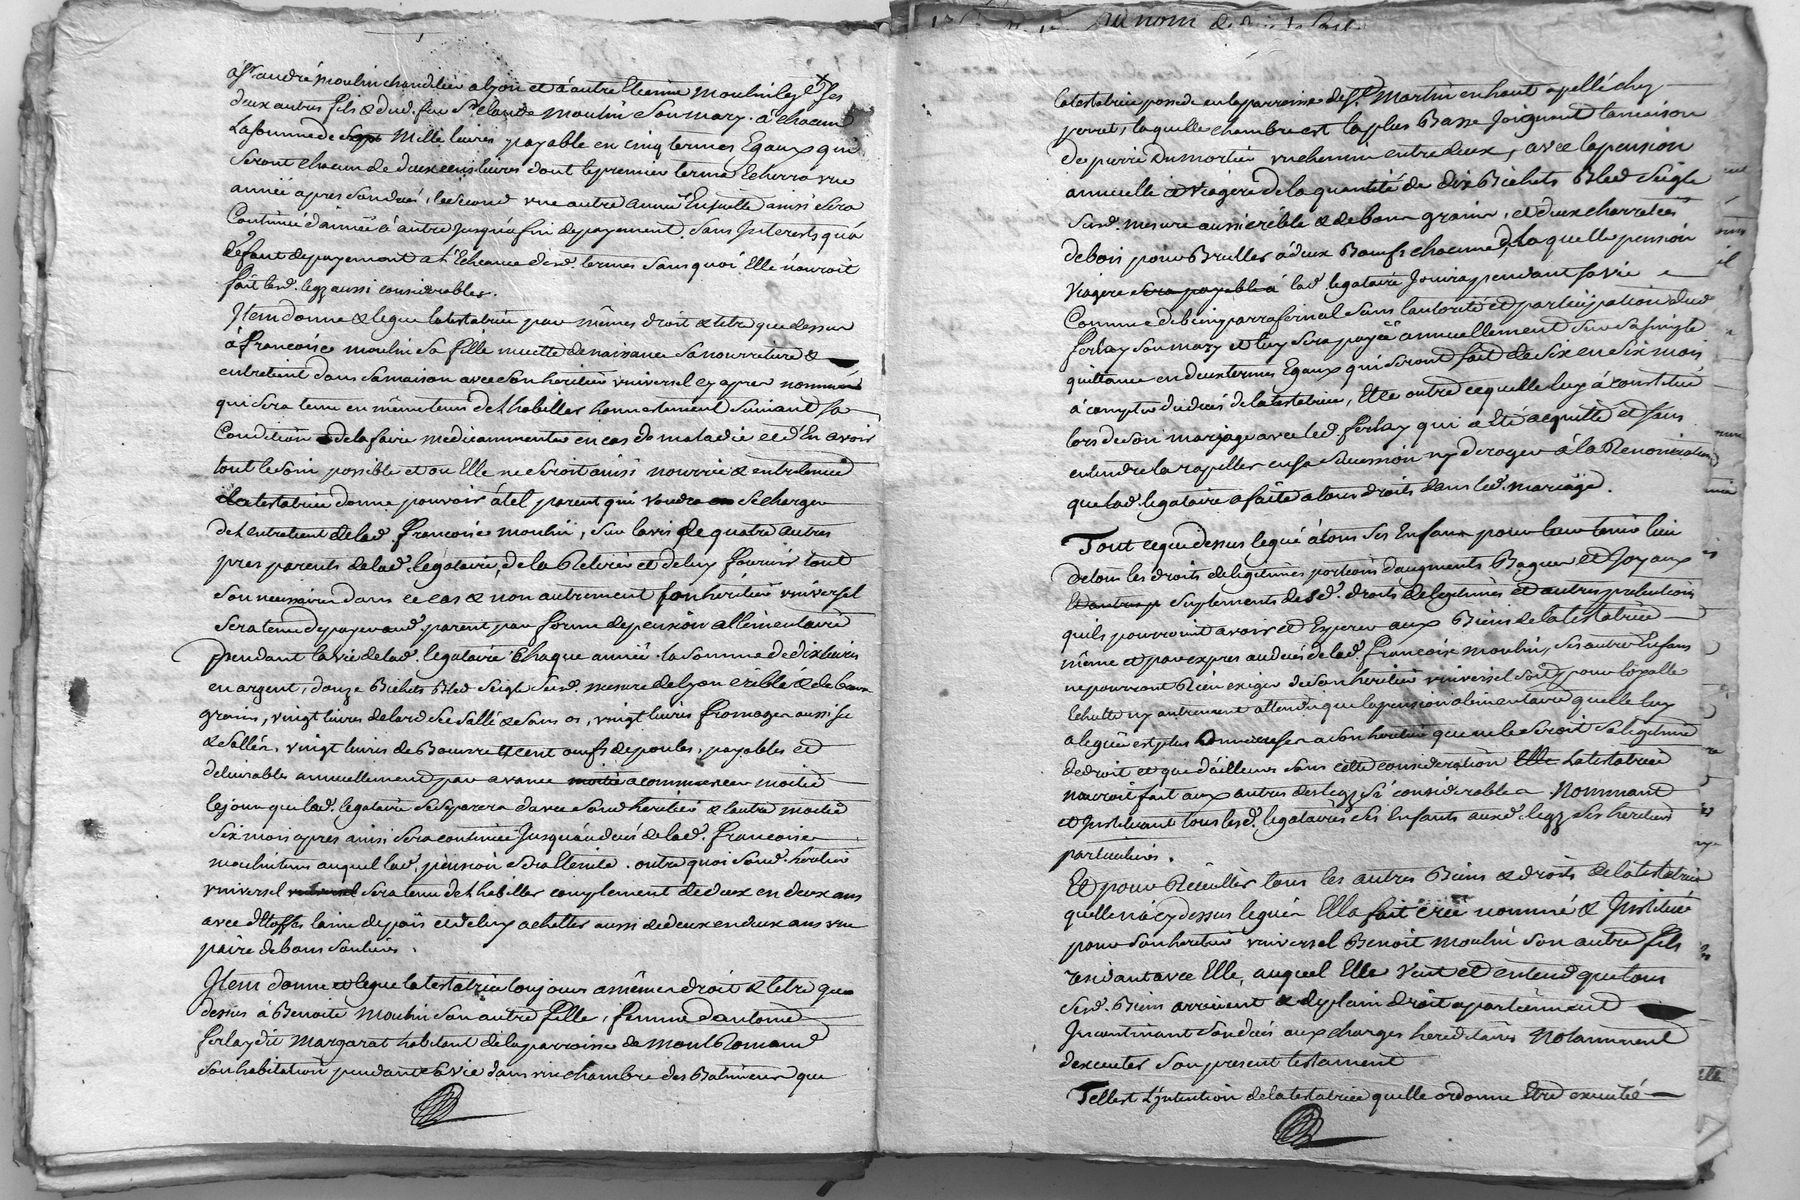 a Sr andré moulin chandelier a lyon et à autre Etienne moulin les Ses
deux autres fils & dud. feu Sr claude moulin Son mary. a chacun
La somme de Mille livres payable en cinq termes Egaux qui
Seront chacun de deux cens livres dont le premier terme Echerra une
année apres Son decés, le Second une autre année Ensuitte ainsi Sera
Continué d'année à autre jusqu'a fin de payement. Sans Interests qu'a
defaut de payement a L'Echeance desd. termes Sans quoi Elle n'auroit
fait lesd. legz aussi considerables.
Item donne & legue la testatrice par mêmes droit & titre que dessus
à francoise moulin Sa fille muette de naissance Sa nourriture &
entretient dans Sa maison avec Son heritier universel cy apres nommé
qui Sera tenu en même tems de L'habiller honnestement Suivant Sa
Condition & de la faire medicammenter en cas de maladie et d'En avoir
tout le Soin possible et ou Elle ne Seroit ainsi nourrie & entretenue
La testatrice donne pouvoir à tel parent qui voudra Se charger
de L'entretient de lad. francoise moulin, Sur l'avis de quatre autres
pres parents de lad. legataire, de la Retirer et de luy fournir tout
Son necessaire dans ce cas & non autrement Son heritier universel
Sera tenu de payer aud. parent par forme de pension allimentaire
pendant la vie de lad. legataire Chaque année la Somme de dix livres
en argent, douze Bichets Bled Seigle Susd. mesure de lyon crible & de bon
grain, vingt livres de lard Sec Sallé & Sans os, vingt livres fromage aussi Sec
& Sallé, vingt livres de Beurre et Cent oeufs de poules, payables et
delivrables annuellement par avance moitié a commencer moitié
le jour que lad. legataire Se Separera davec Sond. heritier & l'autre moitié
Six mois apres ainsi Sera continué Jusqu'au decés de lad. francoise
moulin tems auquel lad. pension Sera Eteinte. outre quoi Sond. heritier
universel Sera tenu de L'habiller complement de deux en deux ans
avec d'Etoffes laine de païs et de luy achetter aussi de deux en deux ans une
paire de bons Souliers.
Item donne et legue la testatrice toujours a mêmes droit & titre que
dessus à Benoite Moulin Son autre fille, femme d'antoine
ferlay dit Margarat habitant de la parroisse de Mont Romand
Son habitation pendant Sa vie dans une chambre des Batimens que
la testatrice possede en la parroisse de St Martin en haut apellé chez
perret, laquelle chambre est la plus Basse Joignant la maison
de pierre Dumortier un chemin entre deux, avec la pension
annuelle et viagere de la quantité de dix Bichets Bled Seigle
Susd. mesure aussi criblé & de bon grain, et deux charretées
de bois pour Bruller à deux Boeufs chacune, de laquelle pension
viagere Sera payable à lad. legataire Jouira pendant Sa vie
Comme de bien parrafernal Sans l'autorité et participation dud.
ferlay Son mary et luy Sera payée annuellement Sur Sa Simple
quittance en deux termes Egaux qui Seront fait de Six en Six mois
à compter du decés de la testatrice, Et ce outre ce quelle luy à constitué
lors de Son mariage avec led. ferlay qui a Eté acquitté et Sans
entendre la rapeller en Sa Succession ny deroger à la Renonciation
que lad. legataire a faite a tous droits dans led. mariage.
Tout ce que dessus legué à tous Ses Enfans pour leur tenir lieu
de tous les droits de legitimes portions d'augments Bagues et Joyaux
Suplements desd. droits de legitimes et autres pretentions
quils pourroient avoir et Esperer aux Biens de la testatrice
même et par expres au decés de lad. francoise moulin, Ses autres Enfans
ne pourront Rien exiger de Son heritier universel Soit pour loyalle
Echutte ny autrement attendu que la pension alimentaire quelle luy
a leguée est plus Onereuse a Son heritier que ne le Seroit Sa legitime
de droit et que d'ailleurs Sans cette consideration La testatrice
n'auroit fait aux autres des legz Si considerables. Nommant
et Instituant tous lesd. legataires Ses Enfants auxd. legz Ses heritiers
particuliers.
Et pour Recueillir tous les autres Biens & droits de la testatrice
quelle n'a cy dessus legués Elle fait crée nommé & Institue
pour Son heritier universel Benoit Moulin Son autre fils
residant avec Elle, auquel Elle veut et entend que tous
Sesd. Biens arrivent & de plain droit apartiennent
Incontinant Son decés aux charges hereditaires Notamment
d'executer Son present testament
Telle est L'intention de la testatrice quelle ordonne Etre executé